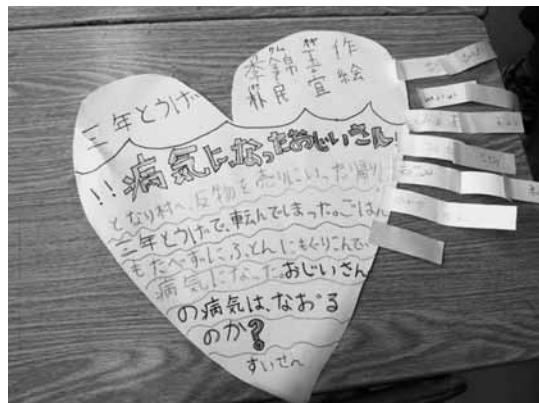 三年とうげ
錦玉 作
民宣 絵
!!病気になったおじいさん!
となり村へ反物を売りにいった帰り、
三年とうげで、転んでしまった。ごはん
もたべずに、ふとんにもぐりこんで、
病気になった。おじいさん
の病気は、なおる
のか?
すいせん